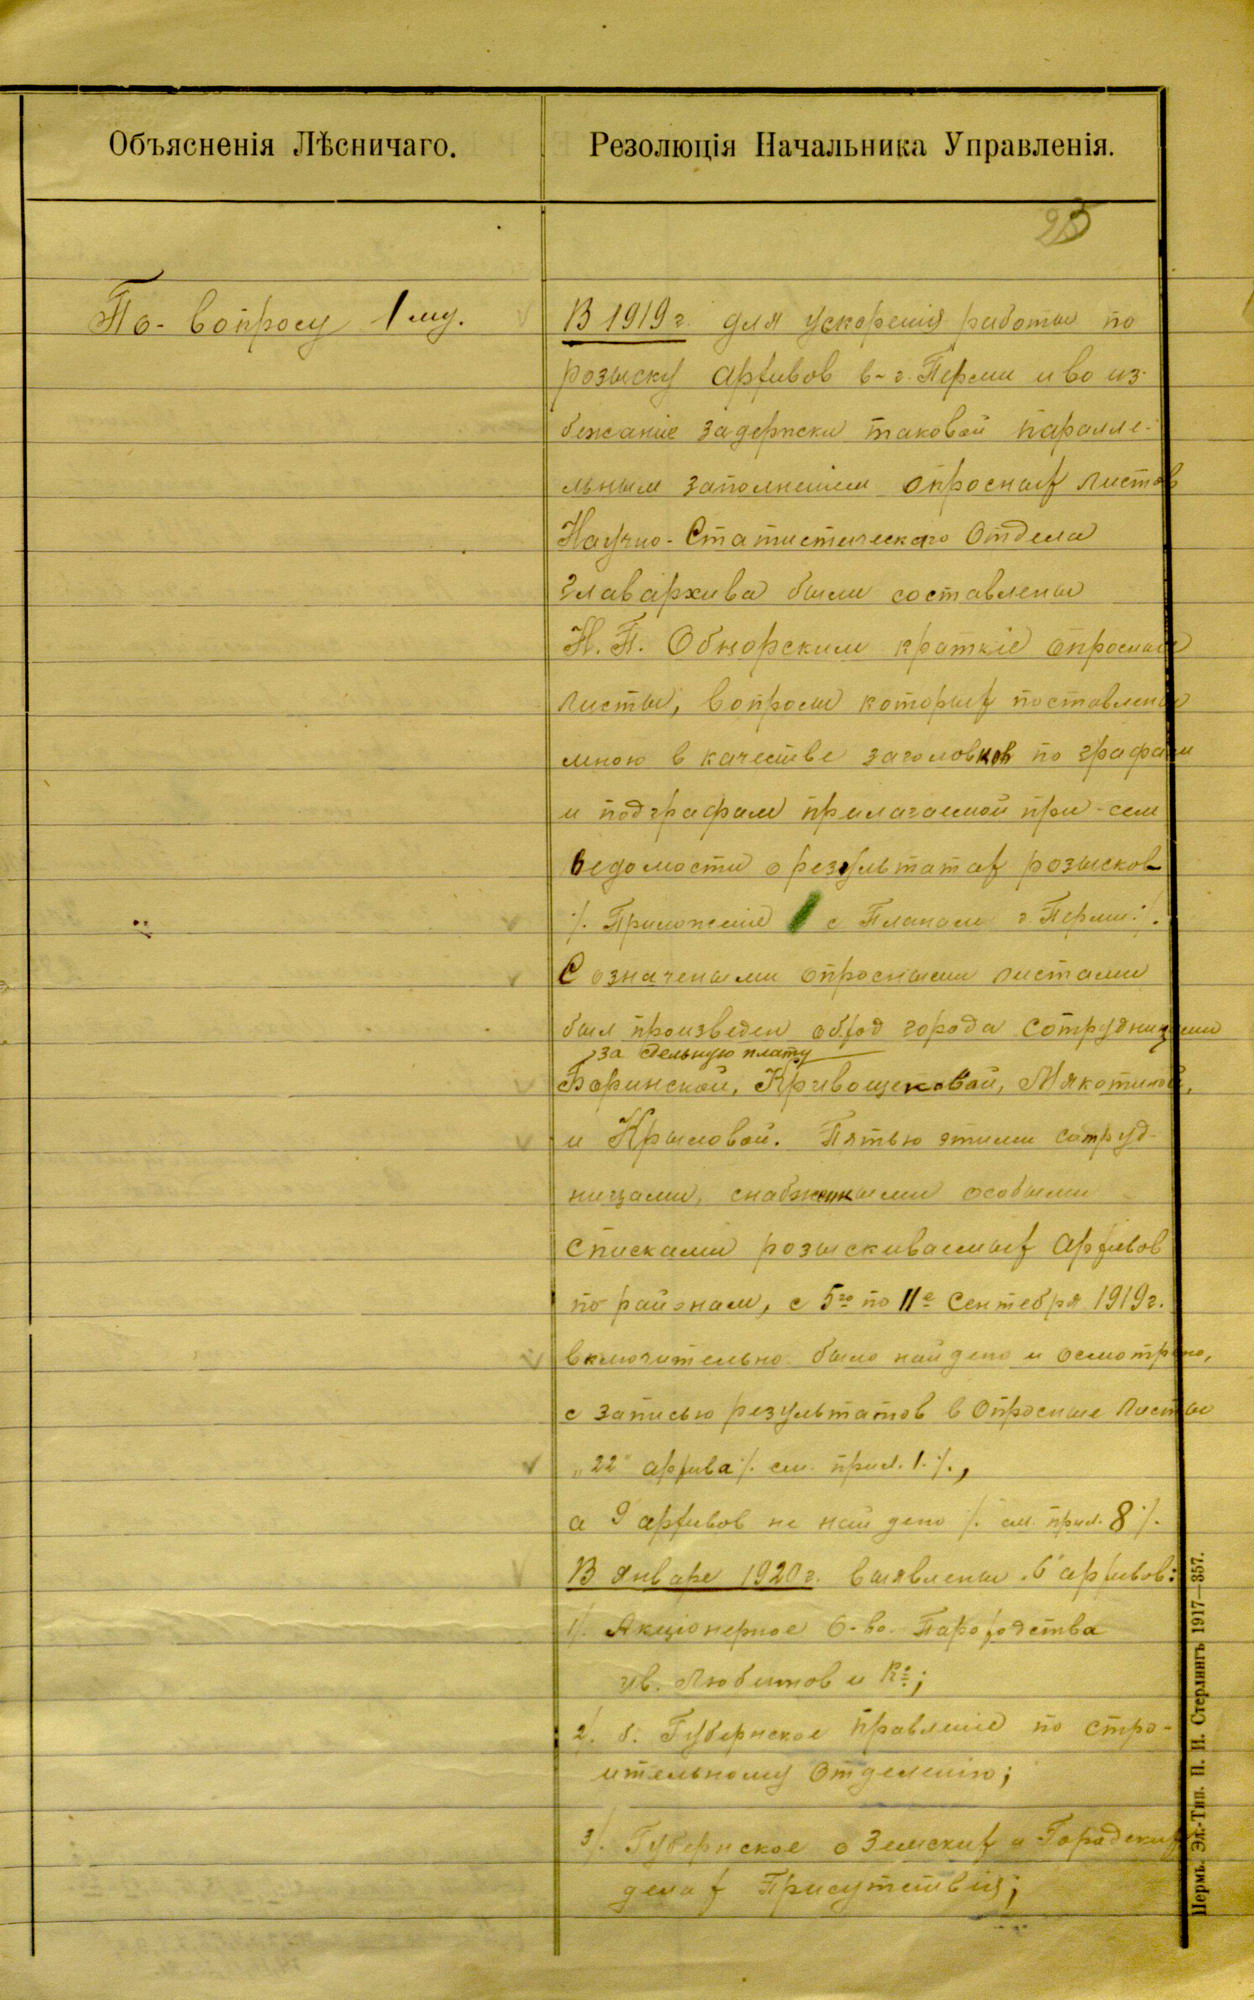 Объясненія Лѣсничаго.
Резолюція Начальника Управленія.
25
По- вопросу 1му.
В 1919 г. для ускоренія работы по
розыску архивов в-г. Перми и во из-
бежаніе задержки таковой паралле-
льным заполненіем опросных листов
Научно-Статистическаго Отдела
Главархива были составлены
Н. П. Обнорским краткіе опросные
листы, вопросы которых поставлены
мною в качестве заголовков по графам
и подграфам прилагаемой при-сем
ведомости о результатах розысков
/. Приложеніе с Планом г. Перми: /.
С означеными опросными листами
был произведен обход города сотрудницами
за сдельную плату
Боринской, Кривощековой, Мякотиной,
и Крыловой. Пятью этими сотруд-
ницами, снабженными особыми
списками розыскиваемых архивов
по районам, с 5го по 11е Сентября 1919 г.
включительно было найдено и осмотрено,
с записью результатов в Опросные Листы
„22" архива /. см. прил. 1. /.,
а 9 архивов не найдено /. см. прил. 8 /.
В Январе 1920 г. выявлены 6 архивов:
1/. Акціонерное О-во. Пароходства
ив. Любимов и Ко;
2/. б. Губернское Правленіе по стро-
ительному Отделенію;
3/. Губернское о Земских и Городских
делах Присутствія;
Пермь. Эл.-Тип. П. П. Стерлингъ 1917—357.